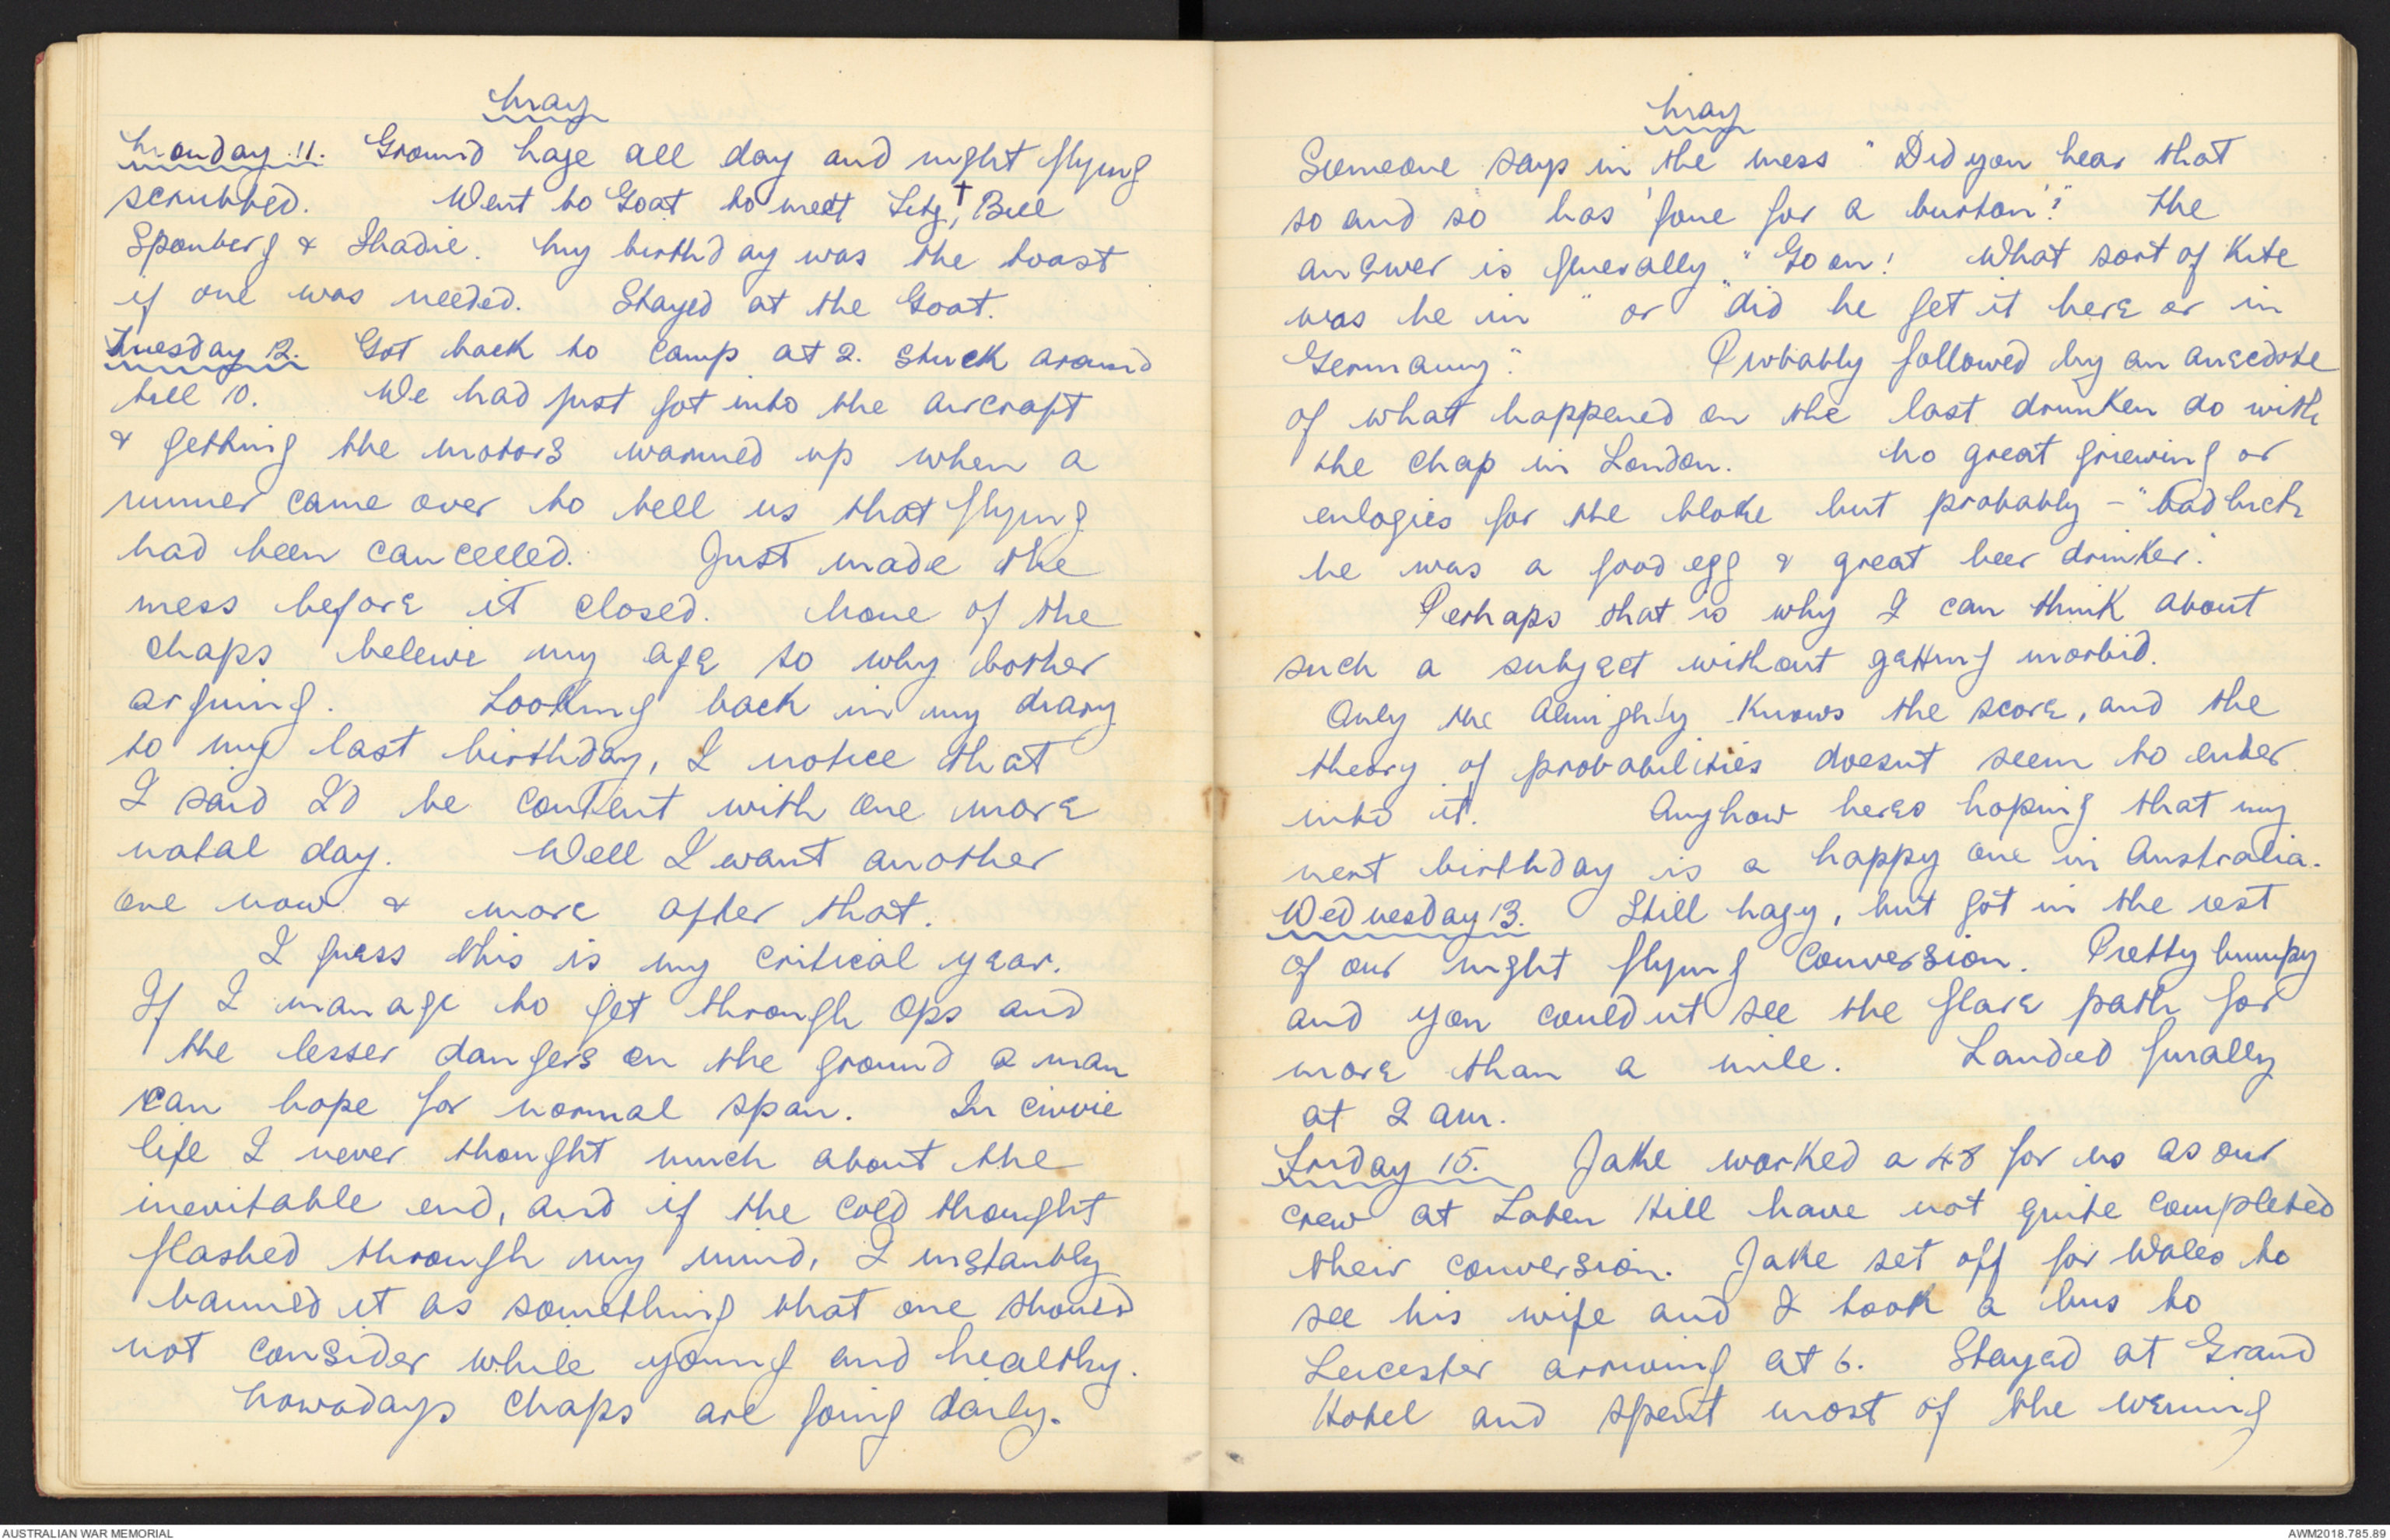 May
Monday 11. Ground haze all day and night flying
scrubbed. Went to Goat to meet Litz,† Bill
Sponberg & Shadie. My birthday was the toast
if one was needed. Stayed at the Goat.
Tuesday 12. Got back to camp at 2. Stuck around
till 10. We had just got into the aircraft
& getting the motors warmed up when a
runner came over to tell us that flying
had been cancelled. Just made the
mess before it closed. None of the
chaps beleive my age so why bother
arguing. Looking back in my diary
to my last birthday, I notice that
I said I'd be content with one more
natal day. Well I want another
one now & more after that.
I guess this is my critical year.
If I manage to get through ops and
the lesser dangers on the ground a man
can hope for normal span. In civvie
life I never thought much about the
inevitable end, and if the cold thought
flashed through my mind, I instantly
banned it as something that one should
not consider while young and healthy.
Nowadays chaps are going daily.
May
Someone says in the mess "Did you hear that
so and so has 'gone for a burton'?" The
answer is generally "Go on! What sort of kite
was he in" or "did he get it here or in
Germany". Probably followed by an anecdote
of what happened on the last drunken do with
the chap in London. No great grieving or
eulogies for the bloke but probably - "bad luck
he was a good egg & great beer drinker."
Perhaps that is why I can think about
such a subject without getting morbid.
Only the Almighty knows the score, and the
theory of probabilities doesnt seem to enter
into it. Anyhow heres hoping that my
next birthday is a happy one in Australia.
Wednesday 13. Still hazy, but got in the rest
of our night flying conversion. Pretty bumpy
and you couldnt see the flare path for
more than a mile. Landed finally
at 2 am.
Friday 15. Jake worked a 48 for us as our
crew at Laten Hill have not quite completed
their conversion. Jake set off for Wales to
see his wife and I took a bus to
Leicester arriving at 6. Stayed at Grand
Hotel and spent most of the evening
AUSTRALIAN WAR MEMORIAL
AWM2018.785.89